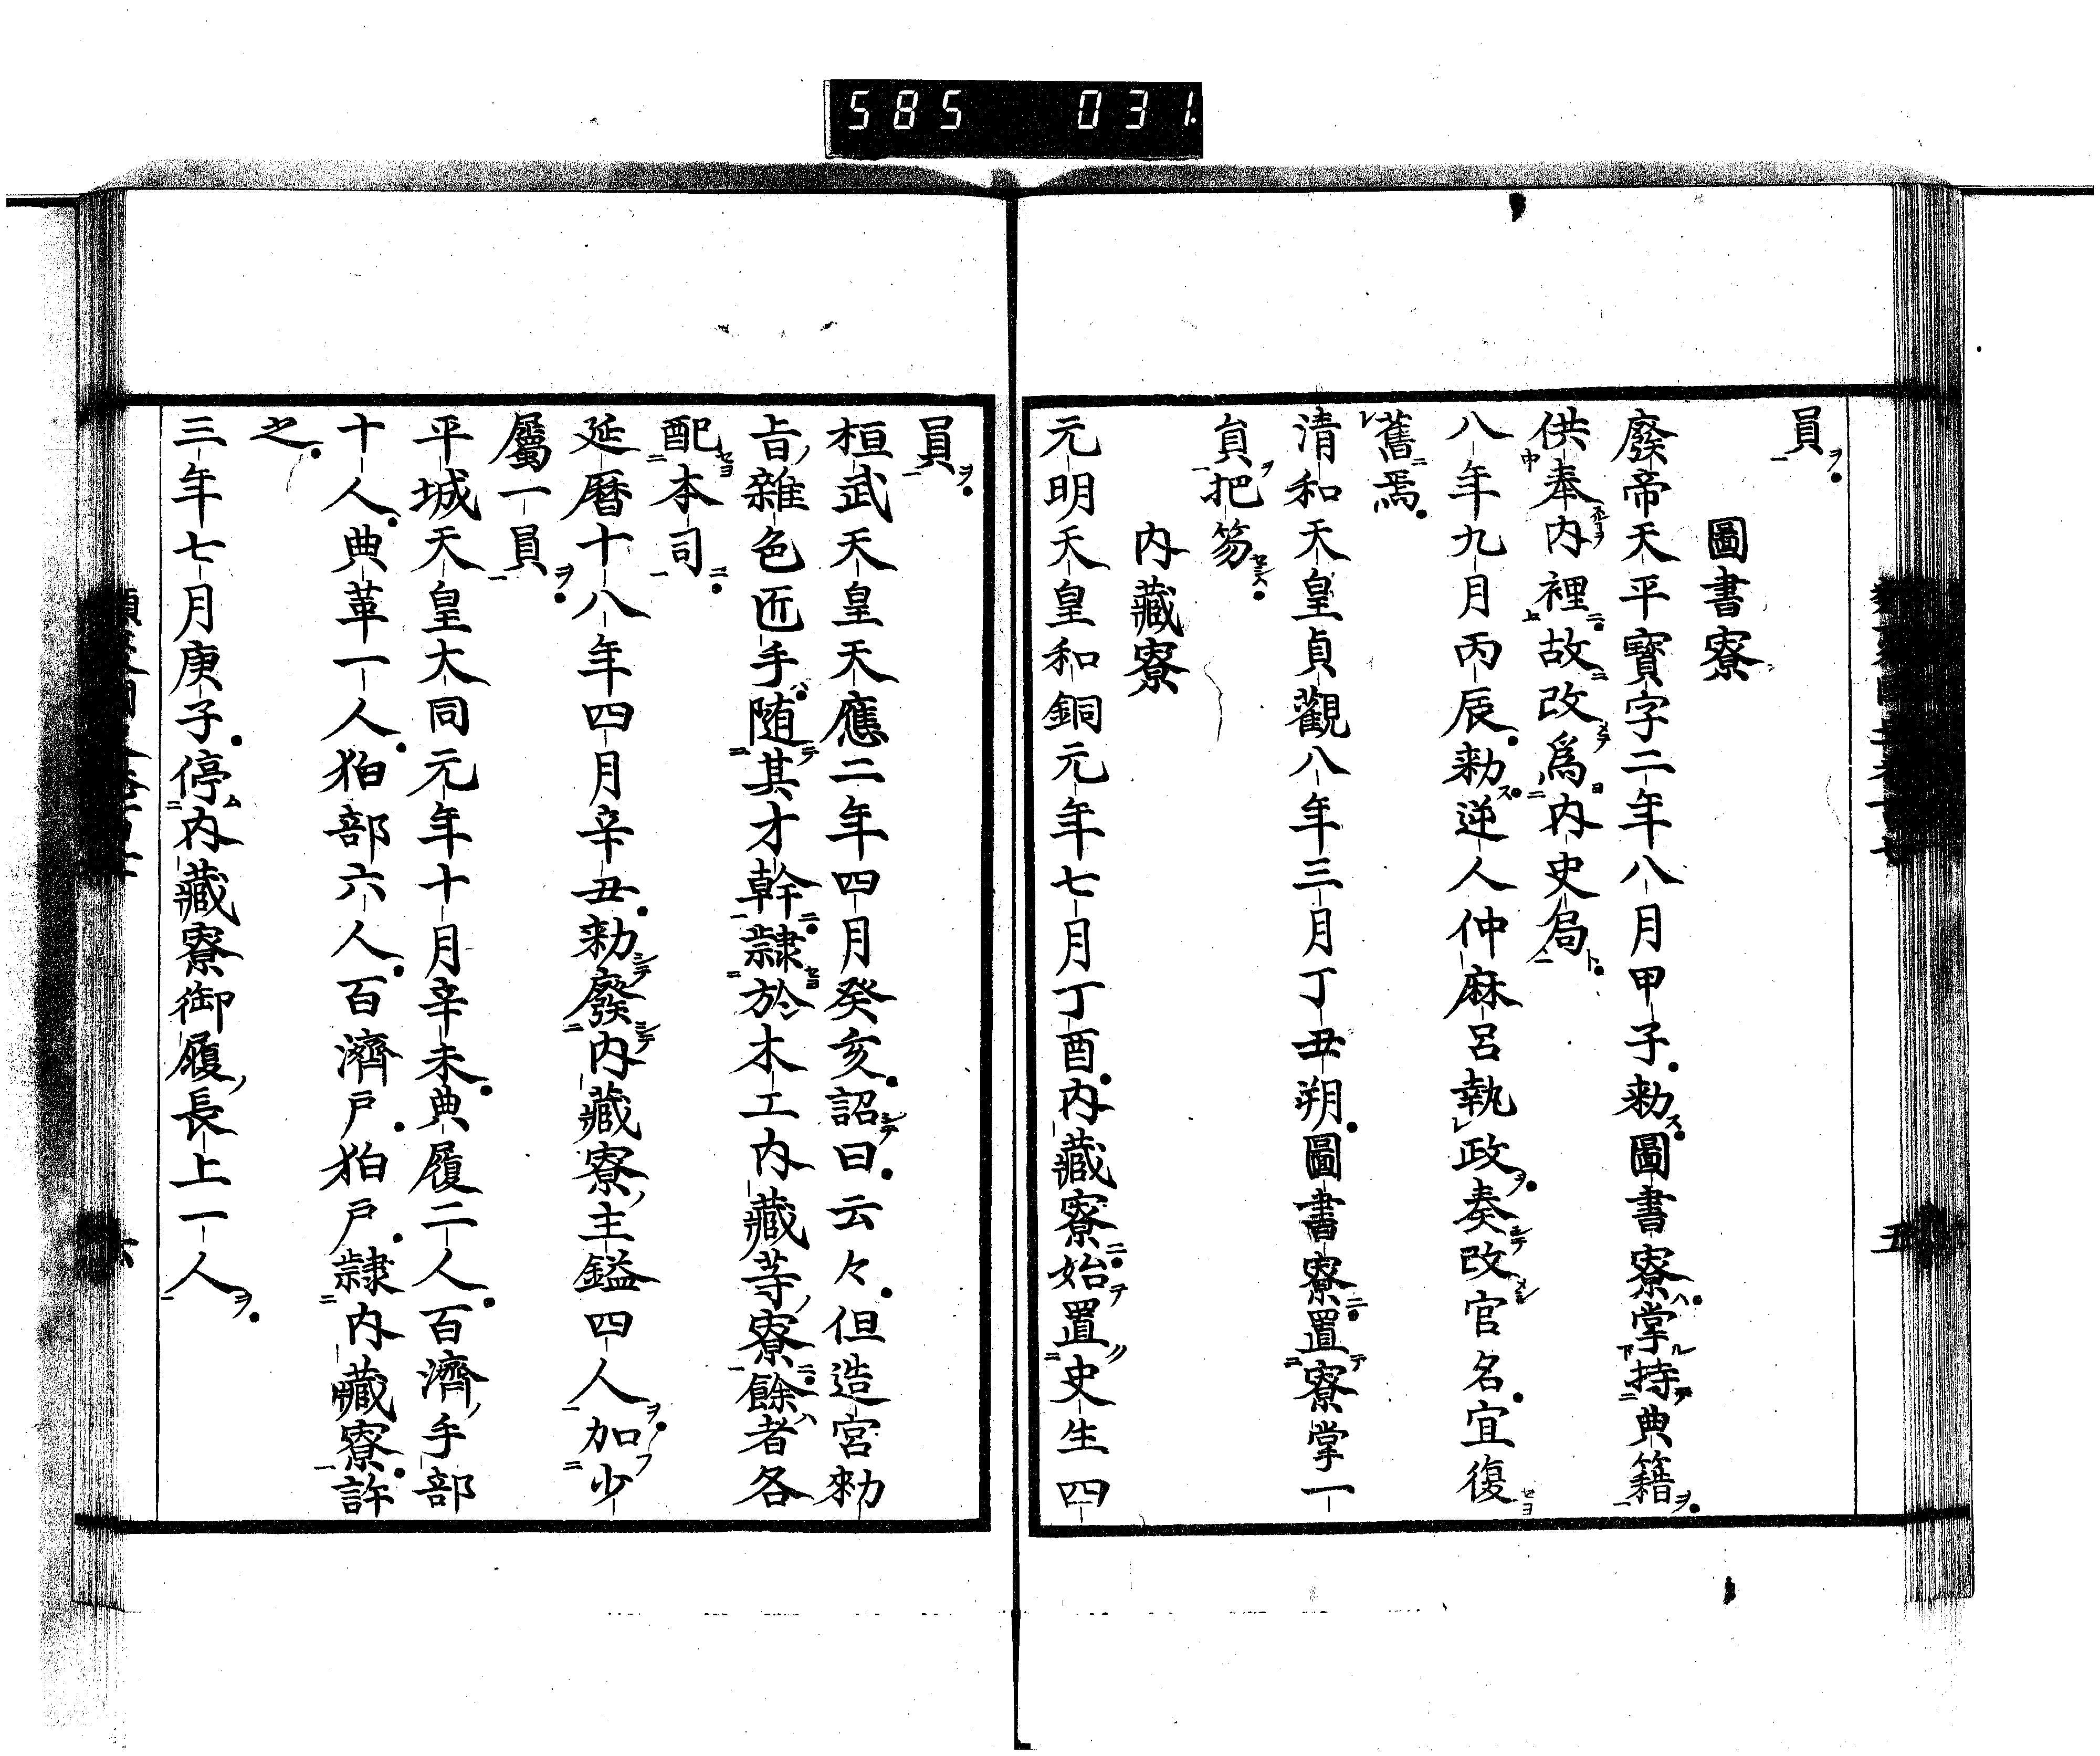 585 031
員
圖書寮
廢帝天平寶字二年八月甲子勑圖書寮掌持典籍
供奉内裡故改爲内史局
八年九月丙辰勑逆人仲麻呂執政奏改官名宜復
舊焉
清和天皇貞觀八年三月丁丑朔圖書寮置寮掌一
員把笏
内藏寮
元明天皇和銅元年七月丁酉内藏寮始置史生四
五
員
桓武天皇天應二年四月癸亥詔曰云々但造宮勑
旨雜色匠手随其才幹隷於木工内藏等寮餘者各
配本司
延曆十八年四月辛丑勑廢内藏寮主鎰四人加少
屬一員
平城天皇大同元年十月辛未典履二人百濟手部
十人典革一人狛部六人百濟戸狛戸隷内藏寮許
之
三年七月庚子停内藏寮御履長上一人
六